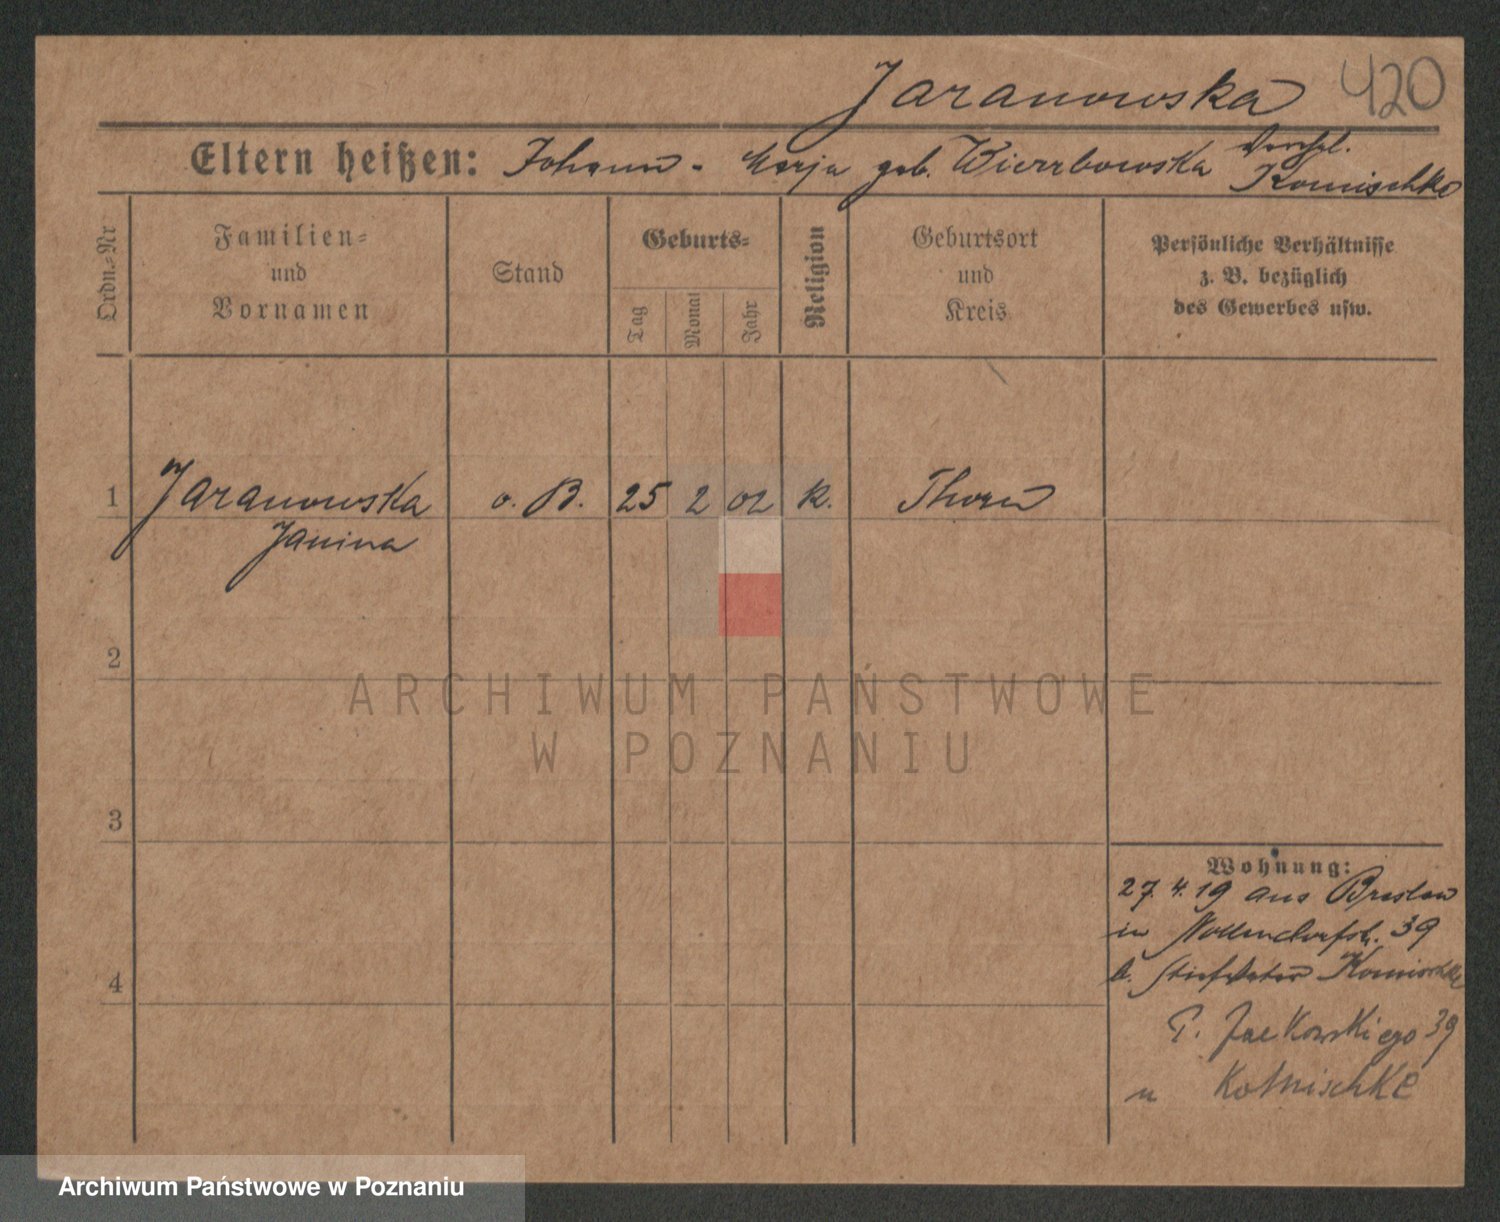 Jaranowska 420
Eltern heißen: Johann - Marja geb. Wierzbowska
Komischke
Ordn.=Nr
Familien=
und
Vornamen
Stand
Geburts=
Tag
Monat
Jahr
Religion
Geburtsort
und
Kreis
Persönliche Verhältnisse
z. B. bezüglich
des Gewerbes usw.
1 Jaranowska o. B. 25 2 02 k. Thorn
Janina
2
ARCHIWUM PAŃSTWOWE
W POZNANIU
3
Wohnung:
27. 4. 19 aus Breslau
in Nollendorfstr. 39
b. Stiefvater Komischke
4
39
u Komischke
Archiwum Państwowe w Poznaniu